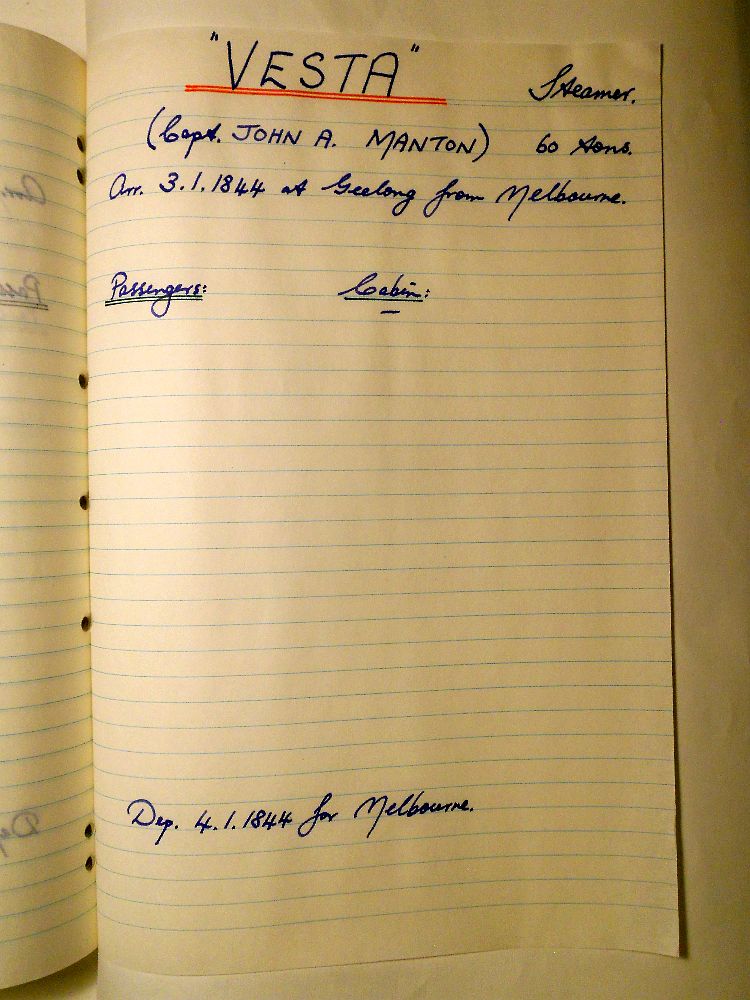 "VESTA" Steamer.
(Capt. JOHN A. MANTON) 60 tons.
Arr. 3.1.1844 at Geelong from Melbourne.
Passengers: Cabin:
—
Dep. 4.1.1844 for Melbourne.